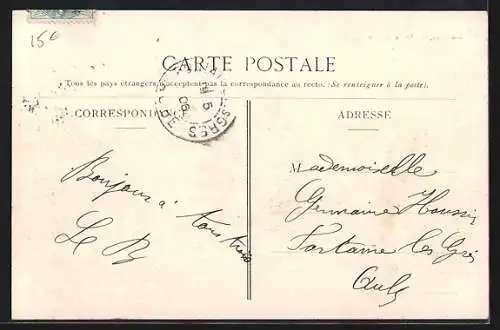 15€
CARTE POSTALE
Tous les pays étrangers n'acceptent pas la correspondance au recto. (Se renseigner à la poste).
CORRESPONDANCE
ADRESSE
Mademoiselle
Germaine
Fontaine les Grès
Aube
Bonjour à tous trois
Le B
5
06